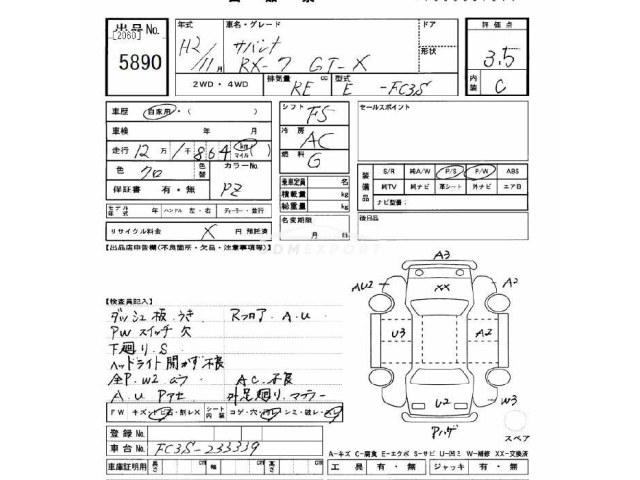 出品号 No.
[2060]
5890
年式
H2/11月
車名・グレード
サバンナ
RX-7 GT-X
ドア
形状
2WD・4WD
排気量 cc
RE
型式
E -FC3S
評価点
3.5
内装
C
車歴 自家用・( )
車検 年 月
走行 12万 1千864 km マイル
色 クロ
色替
カラーNo.
PZ
保証書 有・無
モデル年式 年 ハンドル 左・右 ディーラー・並行
リサイクル料金 X 円 預託済
シフト FS
冷房 AC
燃料 G
乗車定員 名
積載量 kg
総重量 kg
名変期限
月 日
セールスポイント
装備品
S/R 純A/W P/S P/W ABS
純TV 純ナビ 革シート 外ナビ エアB
ナビ型番( )
後日品
【出品店申告欄(不良箇所・欠品・注意事項等)】
【検査員記入】
ダッシュ板うき Rフロア A.U
PWスイッチ欠
下廻り.S
ヘッドライト開かず不良
全P.W2 AC.不良
A.U 外足廻り.マフラー
FW キズ
シート内装 コゲ・穴・シミ・破レ
A3
AU2
A2
XX
U3
A2
U2
W3
Pハゲ
スペア
登録No.
車台No. FC3S-233339
A-キズ C-腐食 E-エクボ S-サビ U-凹ミ W-補修 XX-交換済
車庫証明用 長さ cm 幅 cm 高さ cm
工具 有・無 ジャッキ 有・無